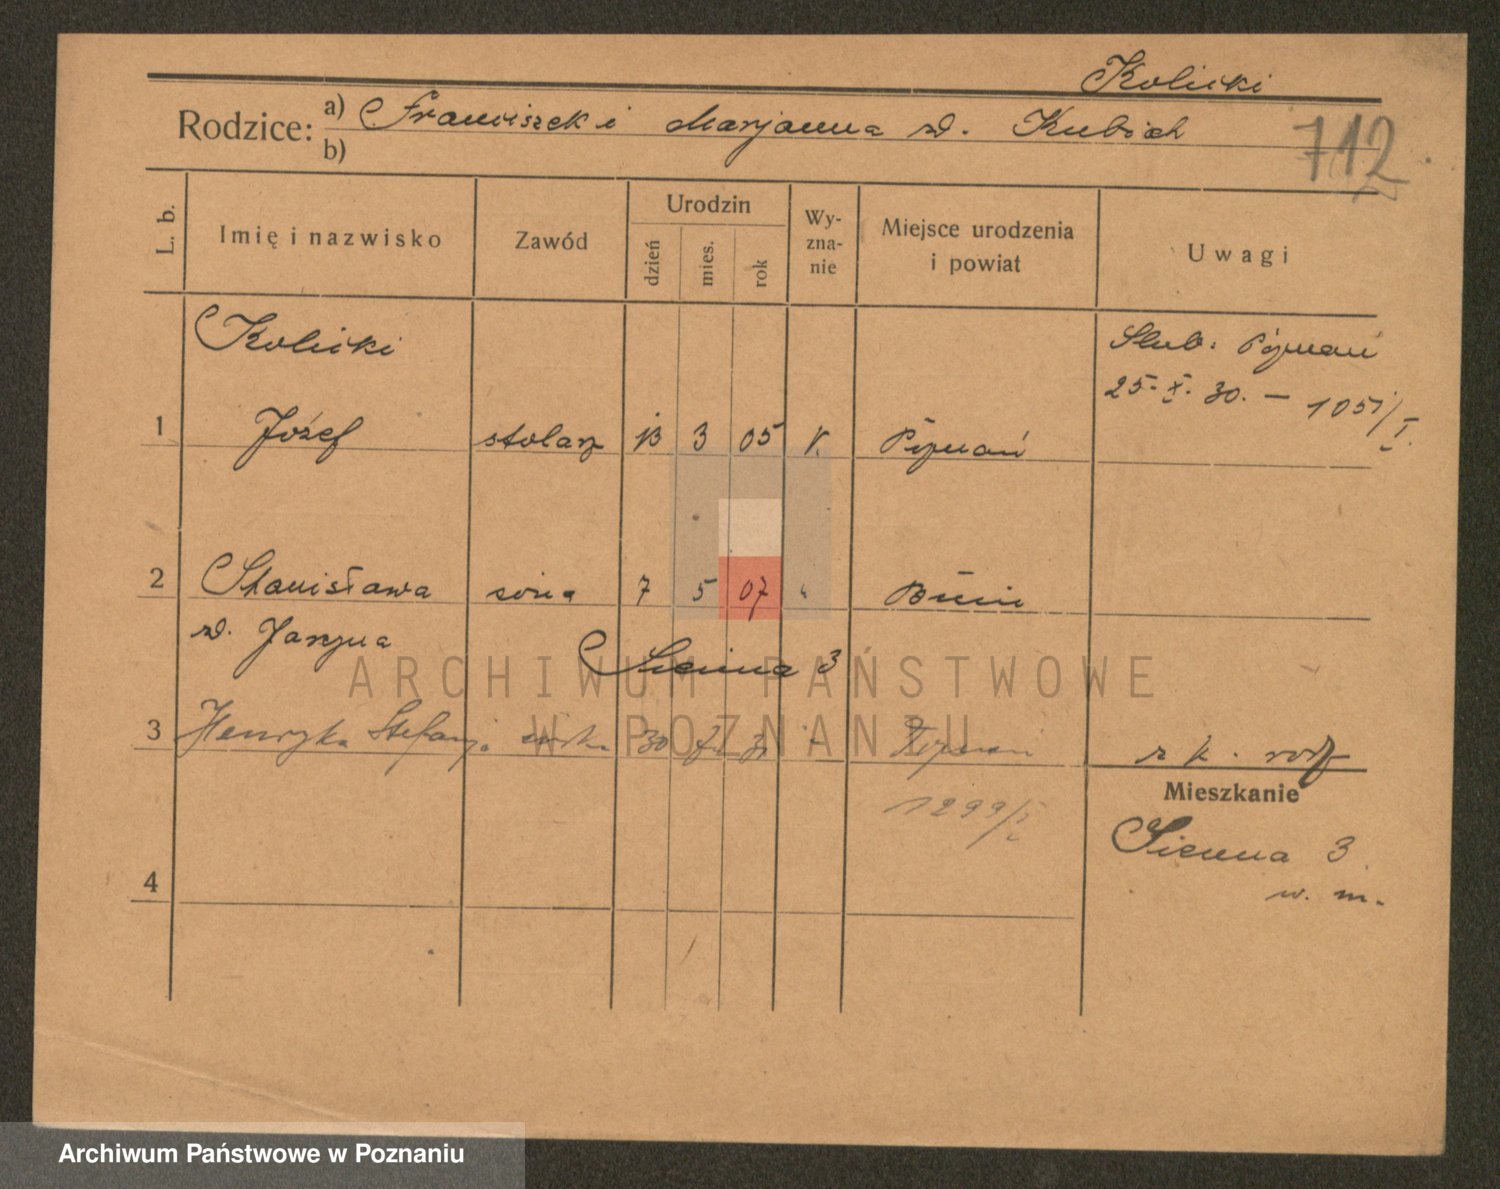 Kolicki
Rodzice: a) Franciszek i Marjanna z d. Kubiak
b)
712
L. b.
Imię i nazwisko
Zawód
Urodzin
dzień
mies.
rok
Wy-
zna-
nie
Miejsce urodzenia
i powiat
Uwagi
Kolicki
Ślub: Poznań
25. X. 30. – 1051/I.
1 Józef stolarz 13 3 05 Poznań
2 Stanisława żona 7 5 07 " Bnin
Sienna 3
3 Henryka Stefanja córka 30 Poznań
r. k.
1299/I
Mieszkanie
Sienna 3
w. m.
4
ARCHIWUM PAŃSTWOWE
W POZNANIU
Archiwum Państwowe w Poznaniu